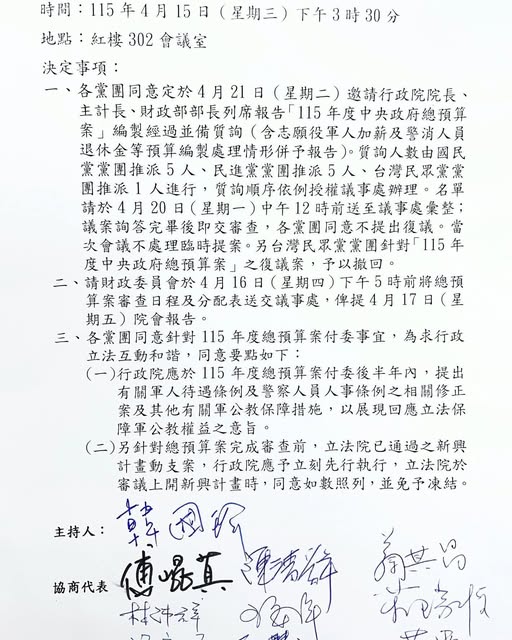 時間：115 年 4 月 15 日（星期三）下午 3 時 30 分
地點：紅樓 302 會議室
決定事項：
一、各黨團同意定於 4 月 21 日（星期二）邀請行政院院長、
主計長、財政部部長列席報告「115 年度中央政府總預算
案」編製經過並備質詢（含志願役軍人加薪及警消人員
退休金等預算編製處理情形併予報告）。質詢人數由國民
黨黨團推派 5 人、民進黨黨團推派 5 人、台灣民眾黨黨
團推派 1 人進行，質詢順序依例授權議事處辦理。名單
請於 4 月 20 日（星期一）中午 12 時前送至議事處彙整；
議案詢答完畢後即交審查，各黨團同意不提出復議。當
次會議不處理臨時提案。另台灣民眾黨黨團針對「115 年
度中央政府總預算案」之復議案，予以撤回。
二、請財政委員會於 4 月 16 日（星期四）下午 5 時前將總預
算案審查日程及分配表送交議事處，俾提 4 月 17 日（星
期五）院會報告。
三、各黨團同意針對 115 年度總預算案付委事宜，為求行政
立法互動和諧，同意要點如下：
(一)行政院應於 115 年度總預算案付委後半年內，提出
有關軍人待遇條例及警察人員人事條例之相關修正
案及其他有關軍公教保障措施，以展現回應立法保
障軍公教權益之意旨。
(二)另針對總預算案完成審查前，立法院已通過之新興
計畫動支案，行政院應予立刻先行執行，立法院於
審議上開新興計畫時，同意如數照列，並免予凍結。
主持人：韓國瑜
協商代表 傅崐萁